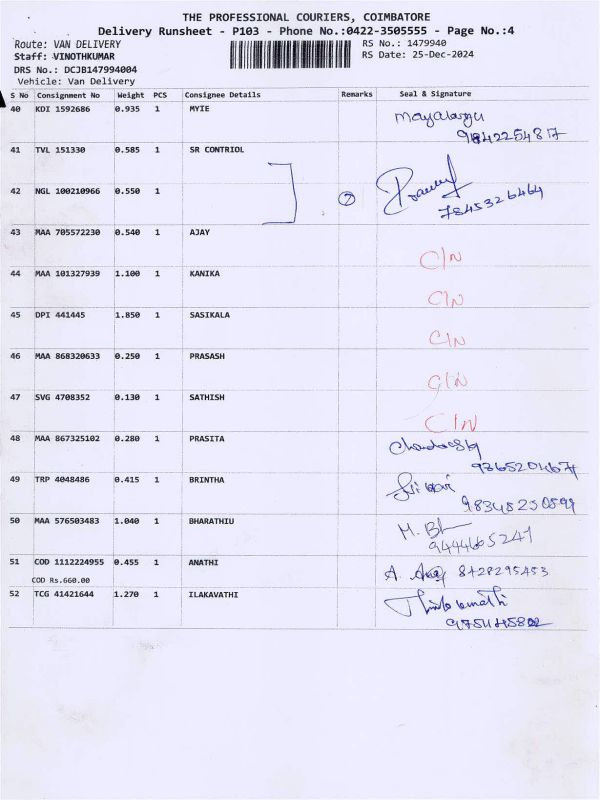 THE PROFESSIONAL COURIERS, COIMBATORE
Delivery Runsheet - P103 - Phone No.:0422-3505555 - Page No.:4
Route: VAN DELIVERY
RS No.: 1479940
Staff: VINOTHKUMAR
RS Date: 25-Dec-2024
DRS No.: DCJB147994004
Vehicle: Van Delivery
S No Consignment No Weight PCS Consignee Details Remarks Seal & Signature
40 KDI 1592686 0.935 1 MYIE
9842254817
41 TVL 151330 0.585 1 SR CONTRIOL
42 NGL 100210966 0.550 1 2
7845326464
43 MAA 705572230 0.540 1 AJAY C/N
44 MAA 101327939 1.100 1 KANIKA C/N
45 DPI 441445 1.850 1 SASIKALA C/N
46 MAA 868320633 0.250 1 PRASASH C/N
47 SVG 4708352 0.130 1 SATHISH C/N
48 MAA 867325102 0.280 1 PRASITA
49 TRP 4048486 0.415 1 BRINTHA
50 MAA 576503483 1.040 1 BHARATHIU M.
9444665241
51 COD 1112224955 0.455 1 ANATHI A. 8428295453
COD Rs.660.00
52 TCG 41421644 1.270 1 ILAKAVATHI